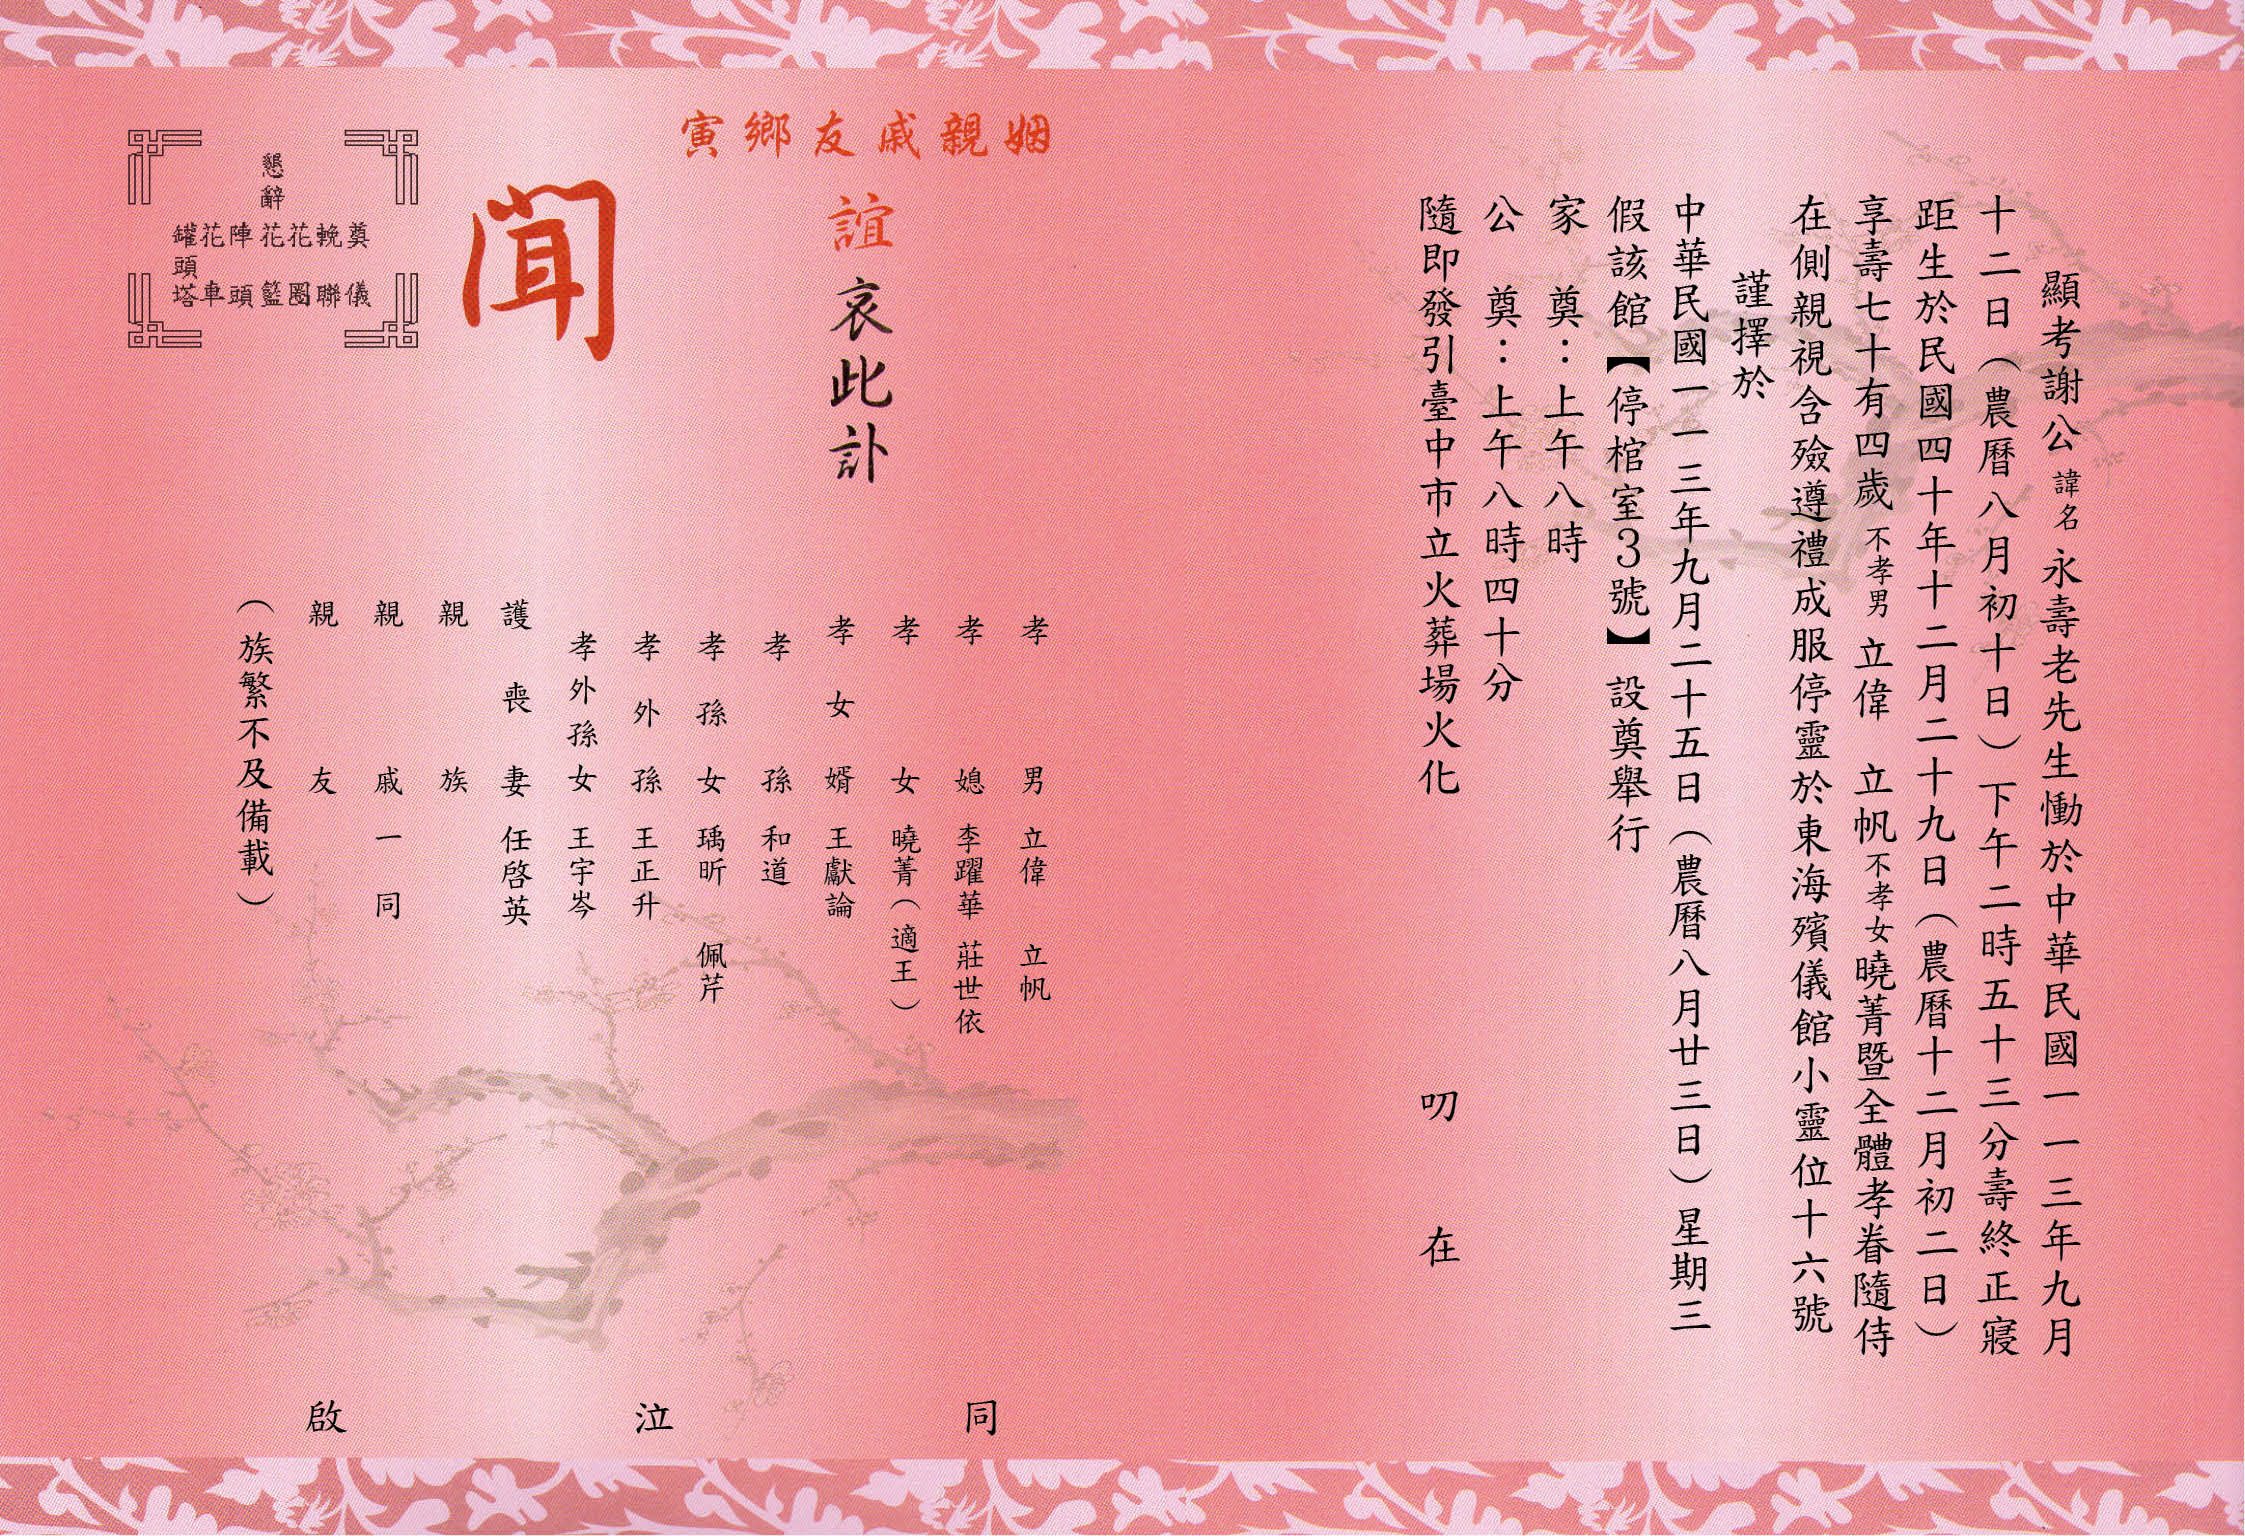 顯考謝公諱名永壽老先生慟於中華民國一一三年九月
十二日（農曆八月初十日）下午二時五十三分壽終正寢
距生於民國四十年十二月二十九日（農曆十二月初二日）
享壽七十有四歲不孝男立偉　立帆不孝女曉菁暨全體孝眷隨侍
在側親視含殮遵禮成服停靈於東海殯儀館小靈位十六號
謹擇於
中華民國一一三年九月二十五日（農曆八月廿三日）星期三
假該館【停棺室3號】設奠舉行
家　奠：上午八時
公　奠：上午八時四十分
隨即發引臺中市立火葬場火化
叨　在
姻親戚友鄉寅
誼哀此訃
聞
孝男　立偉　立帆
孝媳　李躍華　莊世依
孝女　曉菁（適王）
孝女婿　王獻論
孝孫　和道
孝孫女　瑀昕　佩芹
孝外孫　王正升
孝外孫女　王宇岑
護喪妻　任啓英
親族
親戚一同
親友
（族繁不及備載）
同泣啟
懇辭
奠儀
輓聯
花圈
花籃
陣頭
花車
罐頭塔